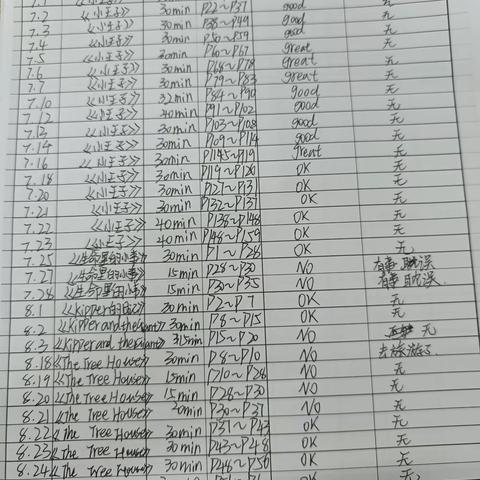 7.2 《小王子》 30min P22~P37 good 无
7.3 《小王子》 30min P38~P49 good 无
7.4 《小王子》 30min P50~P59 good 无
7.5 《小王子》 30min P60~P67 great 无
7.6 《小王子》 30min P68~P78 great 无
7.7 《小王子》 30min P79~P83 great 无
7.10 《小王子》 32min P84~P90 good 无
7.12 《小王子》 40min P91~P102 good 无
7.13 《小王子》 30min P103~P108 good 无
7.14 《小王子》 30min P109~P114 good 无
7.16 《小王子》 30min P1145~P119 great 无
7.18 《小王子》 30min P119~P120 OK 无
7.20 《小王子》 30min P121~P131 OK 无
7.21 《小王子》 30min P132~P137 OK 无
7.22 《小王子》 40min P138~P148 OK 无
7.23 《小王子》 40min P148~P159 OK 无
7.25 《生命里的小事》 30min P1~P28 OK 无
7.27 《生命里的小事》 15min P28~P30 NO 有事耽误
7.28 《生命里的小事》 15min P30~P35 NO 有事耽误
8.1 30min P2~P7 OK 无
8.2 30min P8~P15 OK 无
8.3 P15~P20 NO 无
8.18 《The Tree House》 30min P8~P10 NO 去旅游了
8.19 《The Tree House》 15min P10~P28 NO 无
8.20 《The Tree House》 15min P28~P30 NO 无
8.21 《The Tree House》 20min P30~P37 NO 无
8.22 《The Tree House》 30min P37~P43 OK 无
8.23 《The Tree House》 30min P43~P48 OK 无
8.24 《The Tree House》 30min P48~P50 OK 无